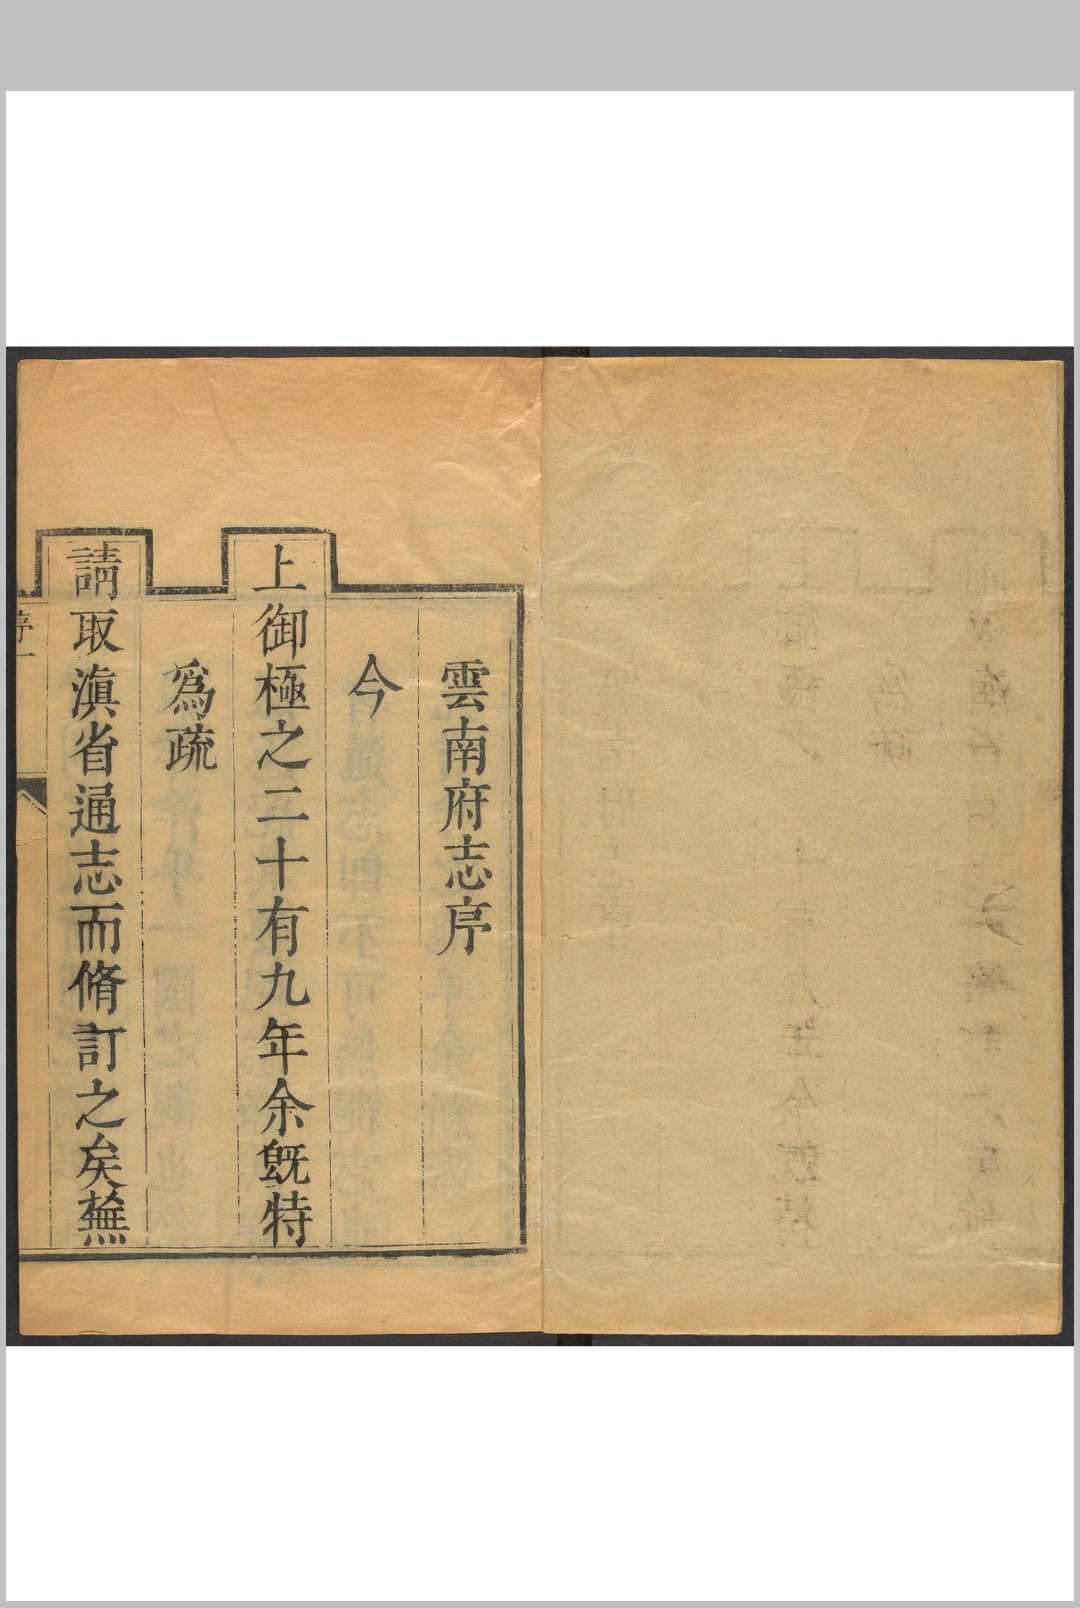 雲南府志序
今
上御極之二十有九年余旣特
為疏
請取滇省通志而脩訂之矣蕪
序一